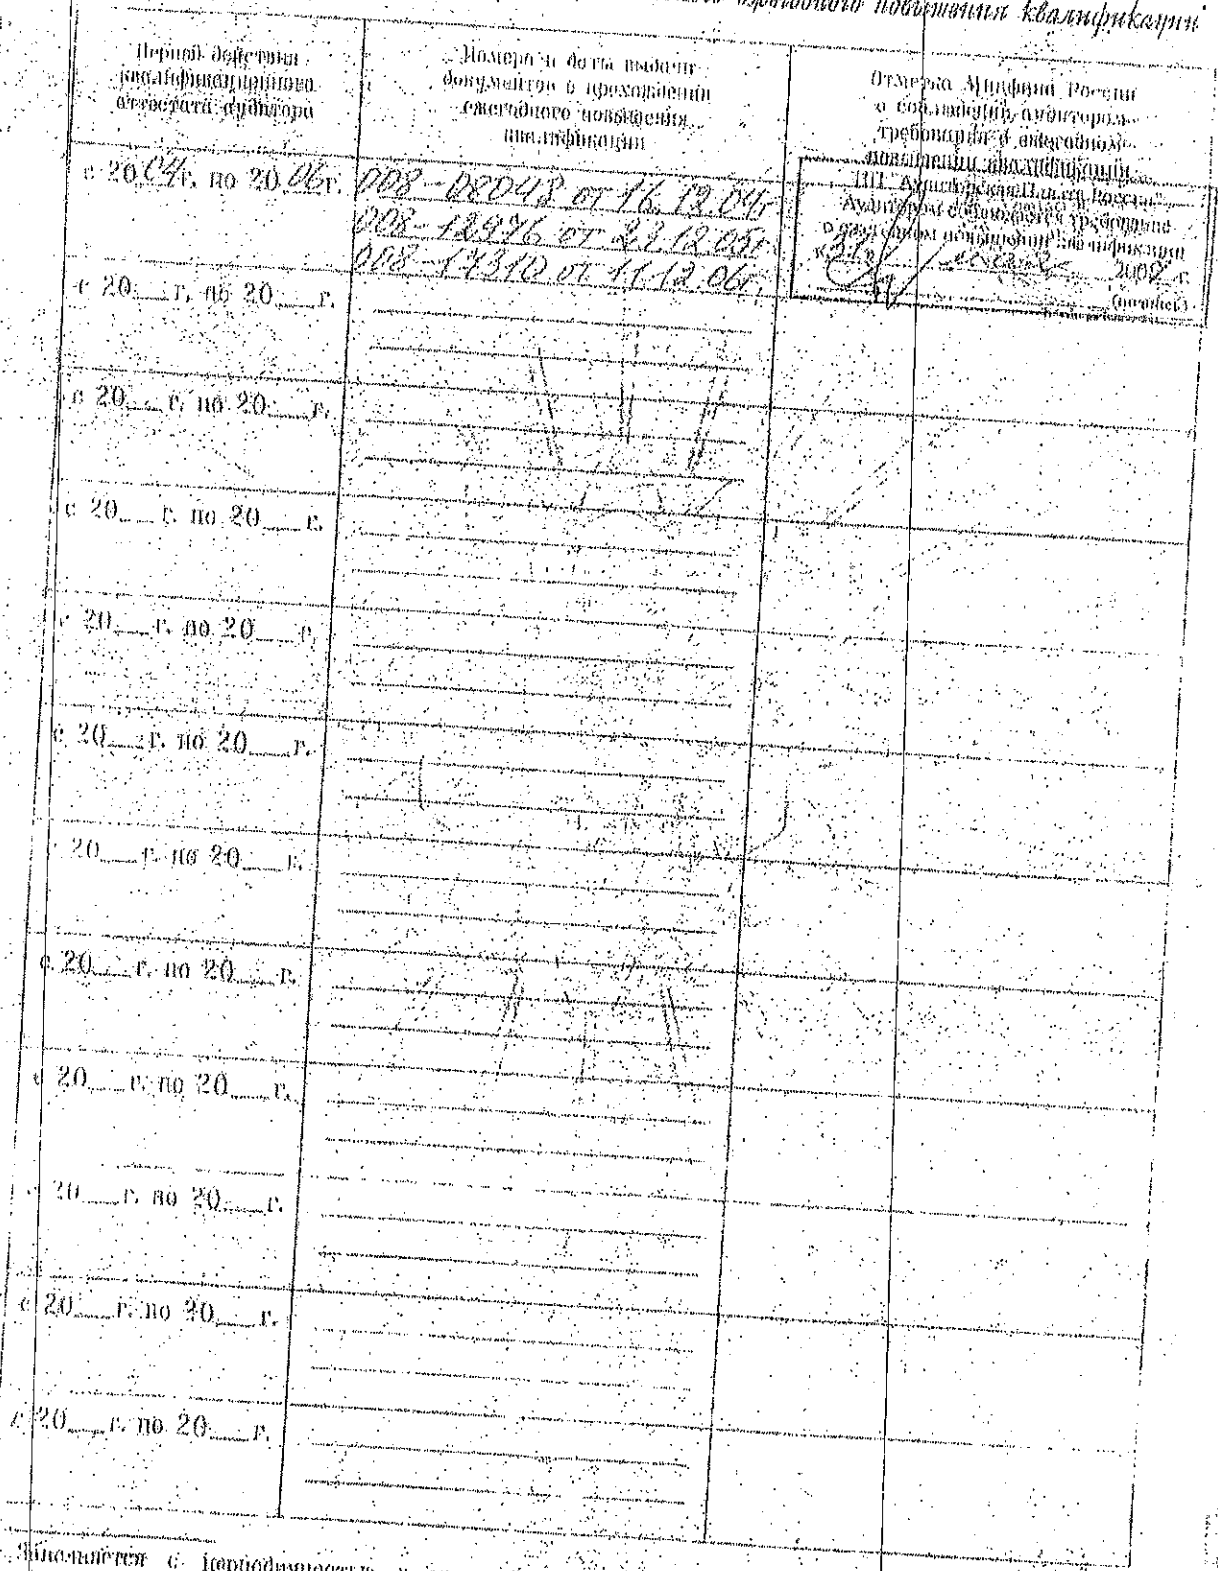 ежегодного повышения квалификации
Период действия
квалификационного
аттестата аудитора
Номера и даты выдачи
документов о прохождении
ежегодного повышения
квалификации
Отметка Минфина России
о соблюдении аудитором
требования о ежегодном
повышении квалификации
с 2004г. по 2006г.
008-08048 от 16.12.04г
008-12976 от 29.12.05г.
008-17310 от 11.12.06г.
НП "Аудиторская Палата России"
Аудитором соблюдается требование
о ежегодном повышении квалификации
г.
(подпись)
с 20__г. по 20__г.
с 20__г. по 20__г.
с 20__г. по 20__г.
с 20__г. по 20__г.
с 20__г. по 20__г.
с 20__г. по 20__г.
с 20__г. по 20__г.
с 20__г. по 20__г.
с 20__г. по 20__г.
с 20__г. по 20__г.
с 20__г. по 20__г.
Заполняется с периодичностью